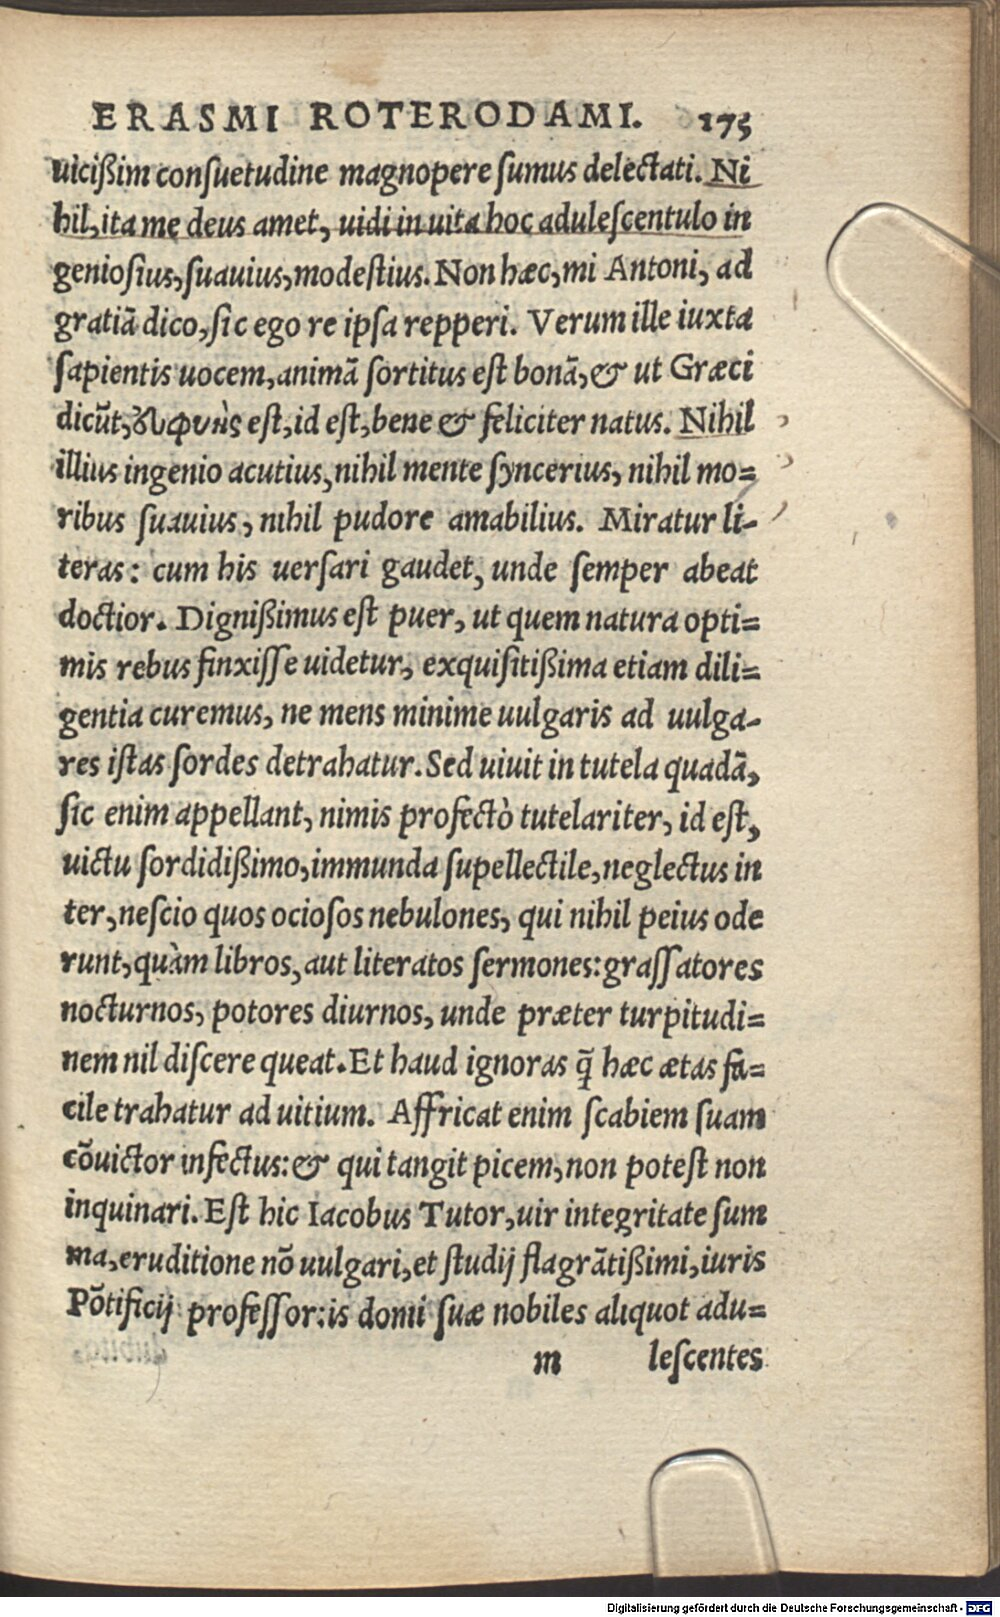 ERASMI ROTERODAMI. 175
uicißim consuetudine magnopere sumus delectati. Ni
hil, ita me deus amet, uidi in uita hoc adulescentulo in
geniosius, suauius, modestius. Non hæc, mi Antoni, ad
gratiā dico, sic ego re ipsa repperi. Verum ille iuxta
sapientis uocem, animā sortitus est bonā, & ut Græci
dicūt, ἐυφυὴς est, id est, bene & feliciter natus. Nihil
illius ingenio acutius, nihil mente syncerius, nihil mo=
ribus suauius, nihil pudore amabilius. Miratur li-
teras: cum his uersari gaudet, unde semper abeat
doctior. Dignißimus est puer, ut quem natura opti=
mis rebus finxisse uidetur, exquisitißima etiam dili=
gentia curemus, ne mens minime uulgaris ad uulga-
res istas sordes detrahatur. Sed uiuit in tutela quadā,
sic enim appellant, nimis profectò tutelariter, id est,
uictu sordidißimo, immunda supellectile, neglectus in
ter, nescio quos ociosos nebulones, qui nihil peius ode
runt, quàm libros, aut literatos sermones: grassatores
nocturnos, potores diurnos, unde præter turpitudi=
nem nil discere queat. Et haud ignoras q̄ hæc ætas fa=
cile trahatur ad uitium. Affricat enim scabiem suam
cōuictor infectus: & qui tangit picem, non potest non
inquinari. Est hic Iacobus Tutor, uir integritate sum
ma, eruditione nō uulgari, et studij flagrātißimi, iuris
Pōtificij professor: is domi suæ nobiles aliquot adu=
m lescentes
Digitalisierung gefördert durch die Deutsche Forschungsgemeinschaft - DFG